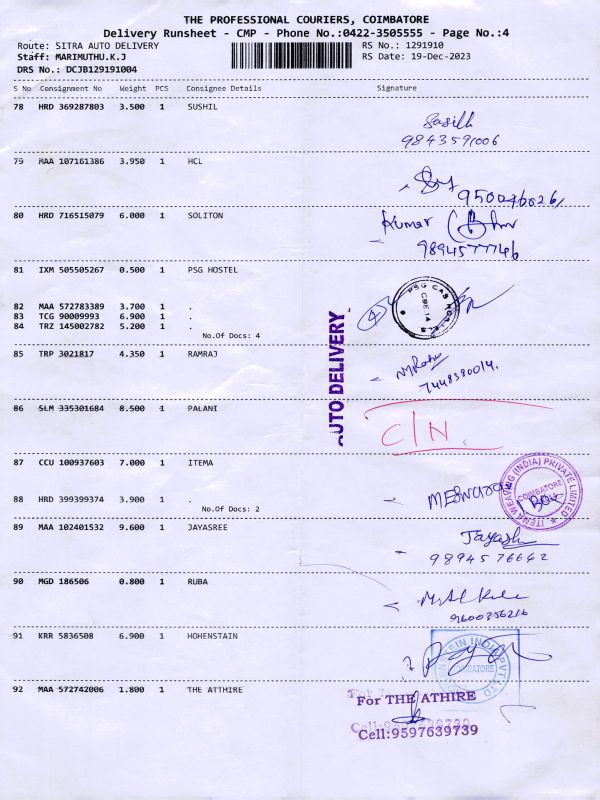 THE PROFESSIONAL COURIERS, COIMBATORE
Delivery Runsheet - CMP - Phone No.:0422-3505555 - Page No.:4
Route: SITRA AUTO DELIVERY RS No.: 1291910
Staff: MARIMUTHU.K.J RS Date: 19-Dec-2023
DRS No.: DCJB129191004
S No Consignment No Weight PCS Consignee Details Signature
78 HRD 369287803 3.500 1 SUSHIL
9843591006
79 MAA 107161386 3.950 1 HCL
80 HRD 716515079 6.000 1 SOLITON
Kumar
9894577746
81 IXM 505505267 0.500 1 PSG HOSTEL
82 MAA 572783389 3.700 1 .
83 TCG 90009993 6.900 1 .
84 TRZ 145002782 5.200 1 .
No.Of Docs: 4
AUTO DELIVERY
85 TRP 3021817 4.350 1 RAMRAJ
7448380014.
86 SLM 335301684 8.500 1 PALANI
C/N
87 CCU 100937603 7.000 1 ITEMA
ITEMA WEAVING (INDIA) PRIVATE LIMITED
COIMBATORE
88 HRD 399399374 3.900 1 .
No.Of Docs: 2
89 MAA 102401532 9.600 1 JAYASREE
9894576662
90 MGD 186506 0.800 1 RUBA
9600356216
91 KRR 5836508 6.900 1 HOHENSTAIN
92 MAA 572742006 1.800 1 THE ATTHIRE
For THE ATHIRE
Cell:9597639739